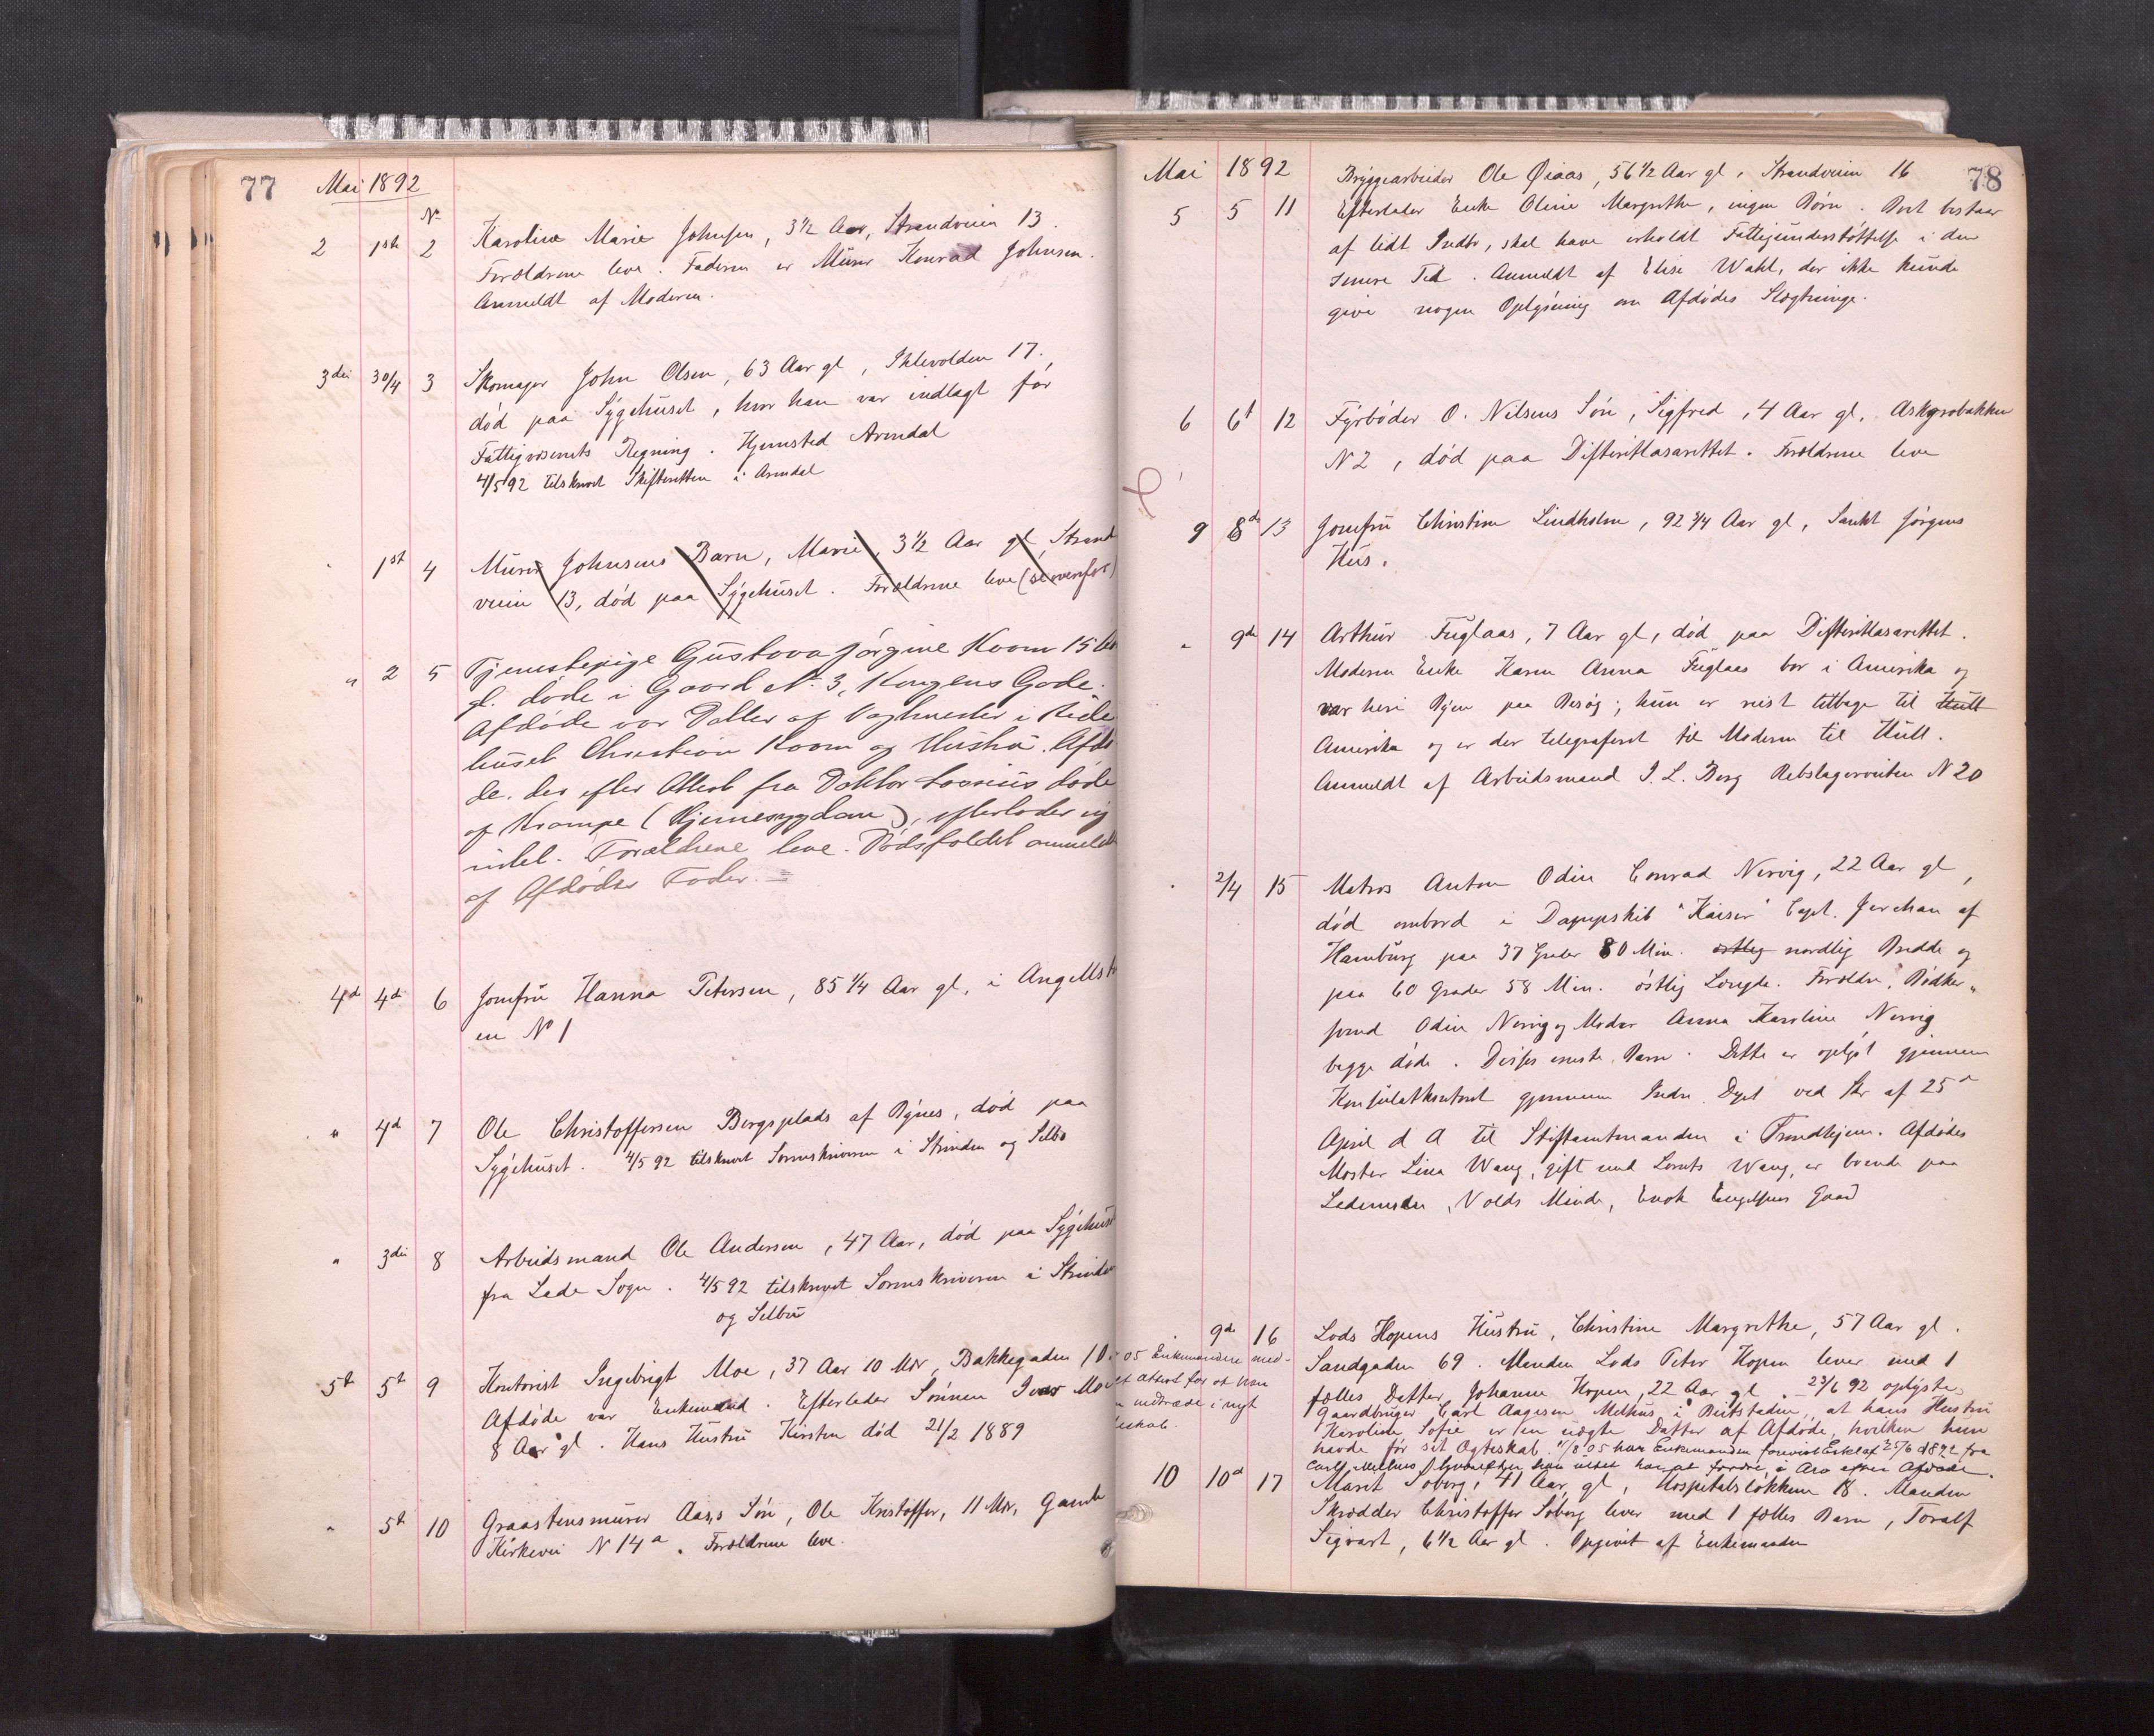 77 Mai 1892
No
2 1ste 2 Karoline Marie Johnsen, 3½ Aar, Strandveien 13.
Forældrene leve. Faderen er Murer Konrad Johnsen.
Anmeldt af Moderen.
3die 30/4 3 Skomager John Olsen, 63 Aar gl, Ihlevolden 17.,
død paa Sygehuset, hvor han var indlagt for
Fattigvæsenets Regning. Hjemsted Arendal
4/5 92 tilskrevet Skifteretten i Arendal
1ste 4 Murer Johnsens Barn, Marie, 3½ Aar gl, Strand
veien 13, død paa Sygehuset. Forældrene leve (se ovenfor)
" 2 5 Tjenestepige Gustava Jørgine Koom 15 Aar
gl. døde i Gaard No. 3, Kongens Gade.
Afdøde var Datter af Vagtmester i Ride
huset Christian Koom og Hustru. Afdø
de, der efter Attest fra Doktor døde
af Krampe (Hjernesygdom), efterlader sig
intet. Forældrene leve. Dødsfaldet anmeldt
af Afdødes Fader. =
4de 4de 6 Jomfru Hanna Petersen, 85¼ Aar gl, i Angells
en No 1
" 4de 7 Ole Christoffersen Bergsplads af Bynes, død paa
Sygehuset. 4/5 92 tilskrevet Sorenskriveren i Strinden og Selbu
" 3die 8 Arbeidsmand Ole Andersen, 47 Aar, død paa Sygehuset
fra Lade Sogn. 4/5 92 tilskrevet Sorenskriveren i Strinden
og Selbu
5te 5te 9 Kontorist Ingebrigt Moe, 37 Aar 10 Mdr, Bakkegaden 10.
Afdøde var Enkemand. Efterleder Sønnen Ivar Moe
8 Aar gl. Hans Hustru Kirsten død 21/2 1889
" 5te 10 Graastensmurer Aas,s Søn, Ole Kristoffer, 11 Mdr, Gamle
Kirkevei N 14a. Forældrene leve.
Mai 1892 78
5 5 11 Bryggearbeider Ole Øiaas, 56½ Aar gl, Strandveien 16
Efterleder Enke Oline Margrethe, ingen Børn. Boet bestaar
af lidt Indbo, skal have erholdt Fattigunderstøttelse i den
senere Tid. Anmeldt af Elise Wahl, der ikke kunde
give nogen Oplysning om Afdødes Slægtninge.
6 6te 12 Fyrbøder O. Nilsens Søn, Sigfred, 4 Aar gl, Asylbakken
N 2, død paa Difteritlasarettet. Forældrene leve
9 8de 13 Jomfru Christine Lindholm, 92¾ Aar gl, Sankt Jørgens
Hus.
" 9de 14 Arthur Fuglaas, 7 Aar gl, død paa Difteritlasarettet.
Moderen Enke Karen Anna Fuglaas bor i Amerika og
var her i Byen paa Besøg; hun er reist tilbage til Hull
Amerika og er der telegraferet til Moderen til Hull.
Anmeldt af Arbeidsmand I. L. Berg Rebslagerveiten N 20
2/4 15 Matros Anton Odin Conrad Nervig, 22 Aar gl,
død ombord i Dampskib "Kaiser" Capt. Jerchau af
Hamburg paa 37 Grader 80 Min. østlig nordlig Bredde og
paa 60 Grader 58 Min. østlig Længde. Forældre, Bødker„
svend Odin Nervig og Moder Anna Karoline Nervig
begge døde. Disses eneste Barn. Dette er oplyst gjennem
Konsulatkontoret gjennem Indre Dept ved Skr af 25de
April d A til Stiftamtmanden i Trondhjem. Afdødes
Moster Lina Wang, gift med Lorents Wang, er boende paa
Lademoen, Volds Minde, Enok Engelsens Gaard
9de 16 Lods Hopens Hustru, Christine Margrethe, 57 Aar gl.
Sandgaden 69. Manden Lods Peter Hopen lever med 1
fælles Datter Johanne Hopen, 22 Aar gl. 23/6 92 oplyste
Gaardbruger Carl Aagesen Melhus i Beitstaden, at hans Hustru
Karoline Sofie er en uægte Datter af Afdøde, hvilken hun
havde før sit Ægteskab. 11/8 05 har Enkemanden forevist Erkl af 25/6 1892 fra
Carl Melhus, hvorefter han intet har at fordre i Arv efter Afdøde.
05 Enkemanden med-
delt Attest for at kan
indtræde i nyt
teskab.
10 10de 17 Marit Soberg, 41 Aar gl, Hospitalsløkken 18. Manden
Skrædder Christoffer Soberg lever med 1 fælles Barn, Toralf
Sigvart, 6½ Aar gl. Opgivet af Enkemanden